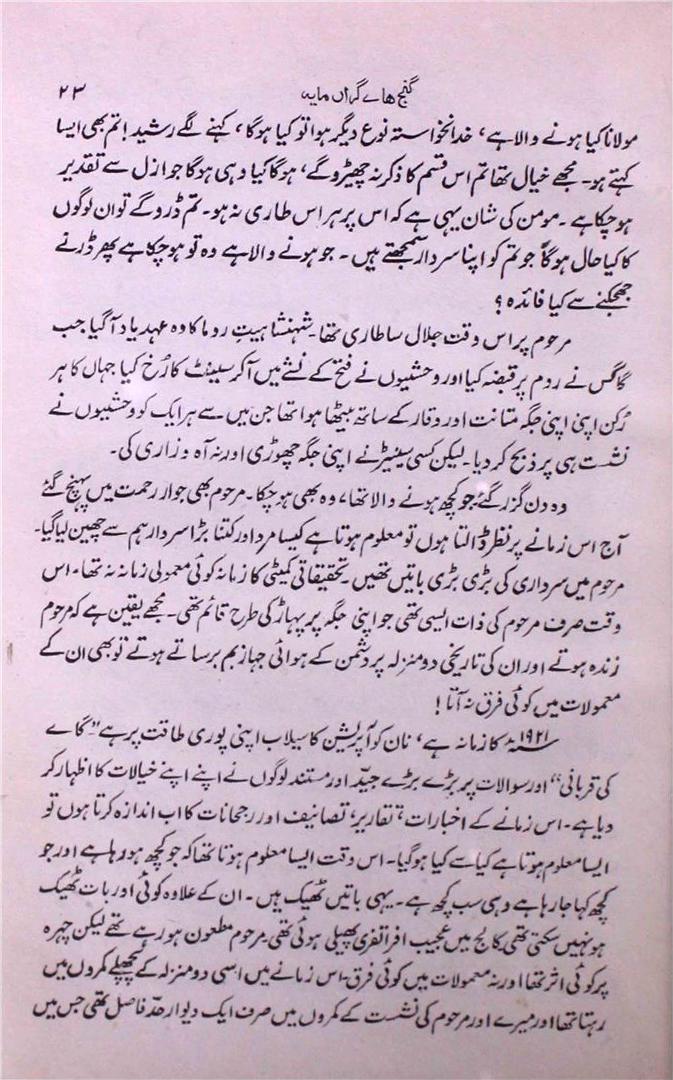 گنج ہائے گراں مایہ ۲۳
مولانا کیا ہونے والا ہے، خدانخواستہ نوع دیگر ہوا تو کیا ہوگا، کہنے لگے رشید! تم بھی ایسا
کہتے ہو۔ مجھے خیال تھا تم اس قسم کا ذکر نہ چھیڑو گے، ہوگا کیا وہی ہوگا جو ازل سے تقدیر
ہو چکا ہے۔ مومن کی شان یہی ہے کہ اس پر ہراس طاری نہ ہو۔ تم ڈرو گے تو ان لوگوں
کا کیا حال ہوگا جو تم کو اپنا سردار سمجھتے ہیں۔ جو ہونے والا ہے وہ تو ہو چکا ہے پھر ڈرنے
جھجکنے سے کیا فائدہ؟
مرحوم پر اس وقت جلال سا طاری تھا۔ شہنشاہیت روما کا وہ عہد یاد آگیا جب
گاگس نے روم پر قبضہ کیا اور وحشیوں نے فتح کے نشے میں آکر سینٹ کا رُخ کیا جہاں کا ہر
رُکن اپنی اپنی جگہ متانت اور وقار کے ساتھ بیٹھا ہوا تھا جن میں سے ہر ایک کو وحشیوں نے
نشست ہی پر ذبح کر دیا۔ لیکن کسی سینیٹر نے اپنی جگہ چھوڑی اور نہ آہ وزاری کی۔
وہ دن گزر گئے جو کچھ ہونے والا تھا، وہ بھی ہو چکا۔ مرحوم بھی جوار رحمت میں پہنچ گئے
آج اس زمانے پر نظر ڈالتا ہوں تو معلوم ہوتا ہے کیسا مرد اور کتنا بڑا سردار ہم سے چھین لیا گیا۔
مرحوم میں سرداری کی بڑی بڑی باتیں تھیں۔ تحقیقاتی کمیٹی کا زمانہ کوئی معمولی زمانہ نہ تھا۔ اس
وقت صرف مرحوم کی ذات ایسی تھی جو اپنی جگہ پر پہاڑ کی طرح قائم تھی۔ مجھے یقین ہے کہ مرحوم
زندہ ہوتے اور ان کی تاریخی دو منزلہ پر دشمن کے ہوائی جہاز بم برساتے ہوتے تو بھی ان کے
معمولات میں کوئی فرق نہ آتا!
۱۹۲۱ء کا زمانہ ہے، نان کوآپریشن کا سیلاب اپنی پوری طاقت پر ہے "گائے
کی قربانی" اور سوالات پر بڑے بڑے جیّد اور مستند لوگوں نے اپنے اپنے خیالات کا اظہار کر
دیا ہے۔ اس زمانے کے اخبارات، تقاریر، تصانیف اور رجحانات کا اب اندازہ کرتا ہوں تو
ایسا معلوم ہوتا ہے کیا سے کیا ہوگیا۔ اس وقت ایسا معلوم ہوتا تھا کہ جو کچھ ہو رہا ہے اور جو
کچھ کہا جا رہا ہے وہی سب کچھ ہے۔ یہی باتیں ٹھیک ہیں۔ ان کے علاوہ کوئی اور بات ٹھیک
ہو نہیں سکتی تھی، کالج میں عجیب افراتفری پھیلی ہوئی تھی۔ مرحوم مطعون ہو رہے تھے لیکن چہرہ
پر کوئی اثر تھا اور نہ معمولات میں کوئی فرق۔ اس زمانے میں اسی دو منزلہ کے پچھلے کمروں میں
رہتا تھا اور میرے اور مرحوم کی نشست کے کمروں میں صرف ایک دیوار حدّ فاصل تھی جس میں